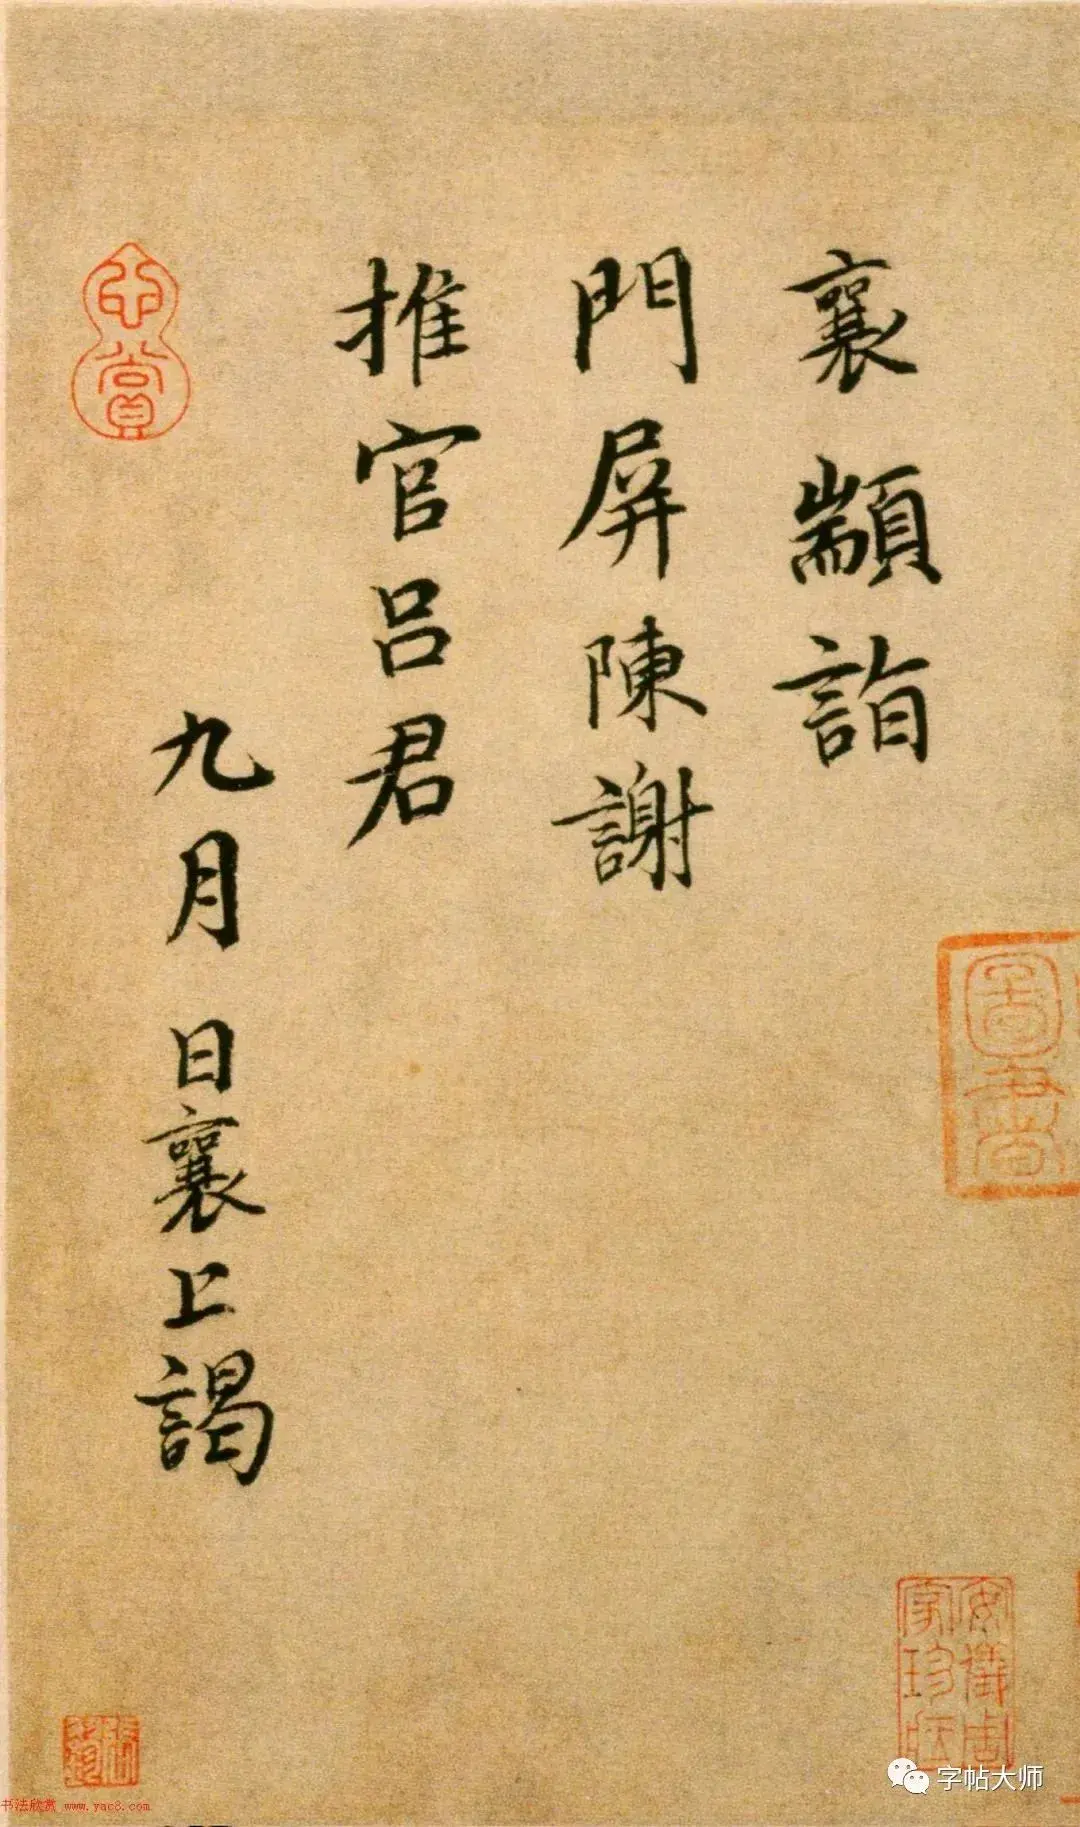 襄顓詣
門屏陳謝
推官呂君
九月 日襄上謁
心賞
圖書
安儀周家珍藏
字帖大师
书法欣赏 www.yac8.com